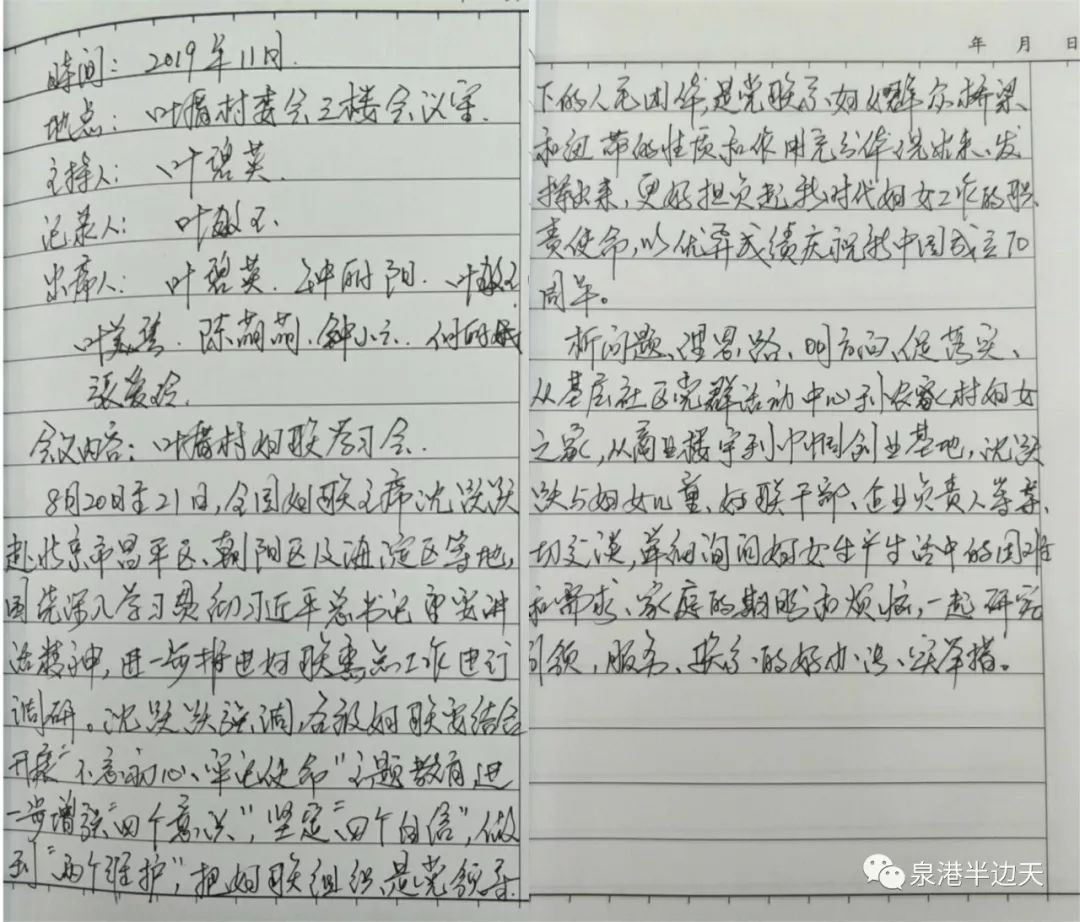 时间：2019年11月.
地点：叶厝村委会三楼会议室.
主持人：叶碧英.
记录人：叶敏玉.
出席人：叶碧英. 钟丽阳. 叶敏玉
叶美 陈萌萌. 钟小 何丽
张爱玲.
会议内容：叶厝村妇联学习会.
8月20日至21日,全国妇联主席沈跃跃
赴北京市昌平区、朝阳区及海淀区等地,
围绕深入学习贯彻习近平总书记重要讲
话精神,进一步推进妇联重点工作进行
调研。沈跃跃强调,各级妇联要结合
开展“不忘初心、牢记使命”主题教育,进
一步增强“四个意识”,坚定“四个自信”,做
到“两个维护”,把妇联组织是党领导
年 月 日
下的人民团体,是党联系妇女群众桥梁
和纽带的性质和作用充分体现出来、发
挥出来,更好担负起新时代妇女工作的职
责使命,以优异成绩庆祝新中国成立70
周年。
析问题、理思路、明方向、促落实、
从基层社区党群活动中心到农家村妇女
之家,从商业楼宇到巾帼创业基地,沈跃
跃与妇女儿童、妇联干部、企业负责人等亲
切交谈,详细询问妇女生产生活中的困难
和需求、家庭的期盼和烦恼,一起研究
引领,服务、联系的好办法、实举措。
泉港半边天